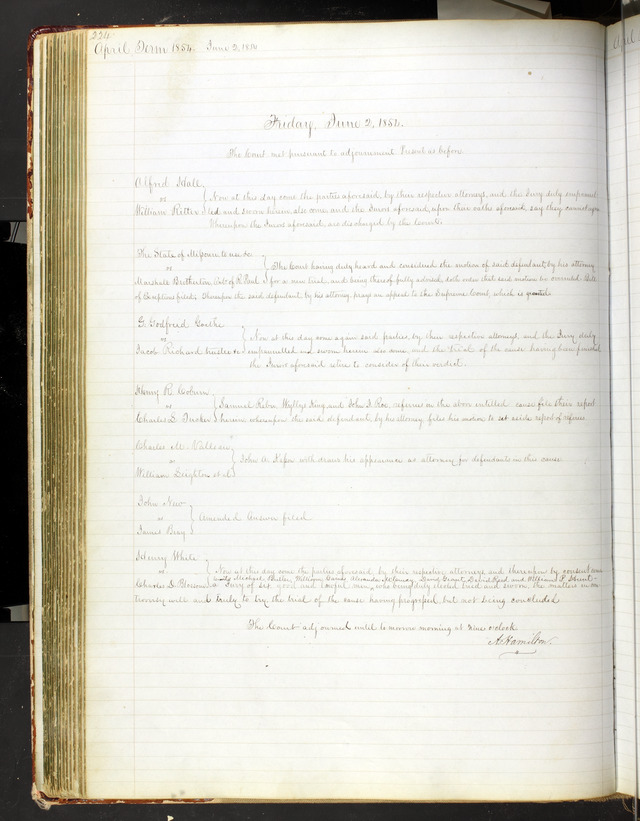 224
April Term 1854. June 2, 1854
Friday, June 2, 1854.
The Court met pursuant to adjournment Present as before.
Alfred Hall
vs
William Ritter
Now at this day come the parties aforesaid, by their respective attorneys, and the Jury duly empannel
led and sworn herein, also comes and the Jurors aforesaid, upon their oaths aforesaid, say they cannot agree
Whereupon the Jurors aforesaid are discharged by the Court.
The State of Missouri to use &c
vs
Marshall Brotherton
The Court having duly heard and considered the motion of said defendant, by his attorney
for a new trial, and being thereof fully advised, doth order that said motion be overruled. Bill
of Exceptions filed. Whereupon the said defendant by his attorney prays an appeal to the Supreme Court, which is granted
G. Godfried Goethe
vs
Jacob Richard trustee &c
Now at this day come again said parties, by their respective attorneys, and the Jury duly
empannelled and sworn herein also come, and the trial of the cause having been finished
the Jurors aforesaid retire to consider of their verdict.
Henry R. Coburn
vs
Charles L. Tucker
Samuel Reber, Wyllys King, and John J. Roe, referees in the above entitled cause file their report
herein whereupon the said defendant, by his attorney files his motion to set aside report of referees
Charles M. Valleau
vs
William Leighton et al
John A. Kasson withdraws his appearance as attorney for defendants in this cause
John New
vs
James Bing
Amended Answer filed
Henry While
vs
Charles D. Blossom
Now at this day come the parties aforesaid by their respective attorneys and thereupon by consent come
to wit, Michael Miller, William Davis, Alexander Maloney, David Grant, David Reed and William F. Hunt
a Jury of six good and lawful men, who being duly elected tried and sworn, the matters in con
troversy well and truly to try, the trial of the cause having progressed but not being concluded
The Court adjourned until to morrow morning at nine o'clock
A. Hamilton.
April